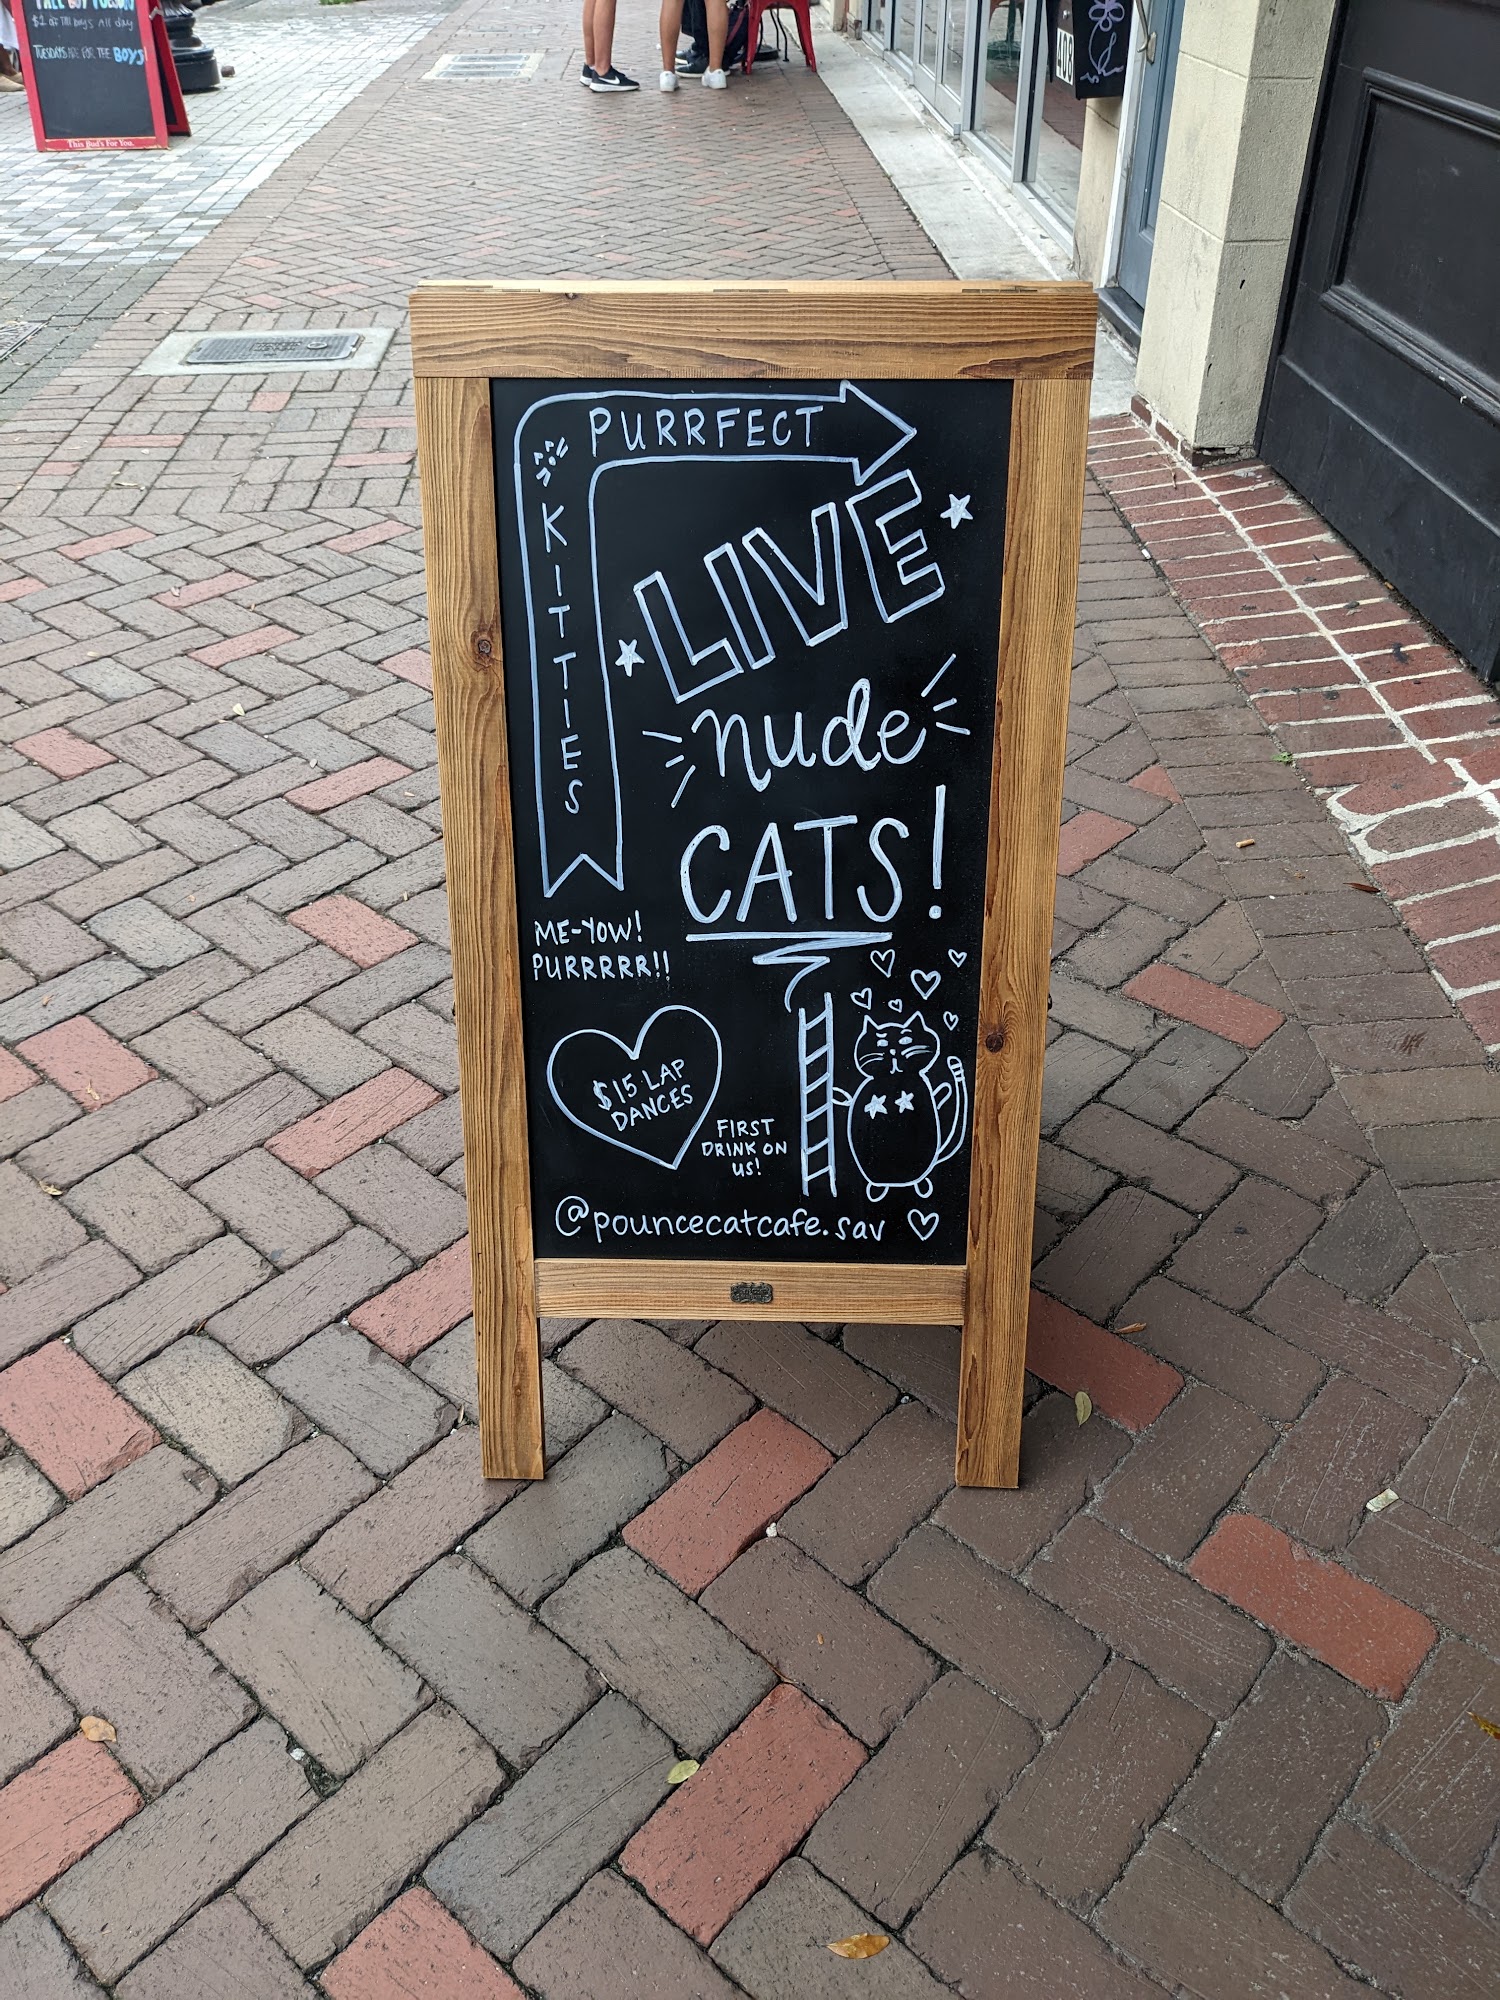 FREE BOY TUESDAY
$2 off Tall boys All day
TUESDAYS ARE FOR THE BOYS!
This Bud's For You.
408
PURRFECT
KITTIES
LIVE
nude
CATS!
ME-YOW!
PURRRRR!!
$15 LAP
DANCES
FIRST
DRINK ON
US!
@pouncecatcafe.sav